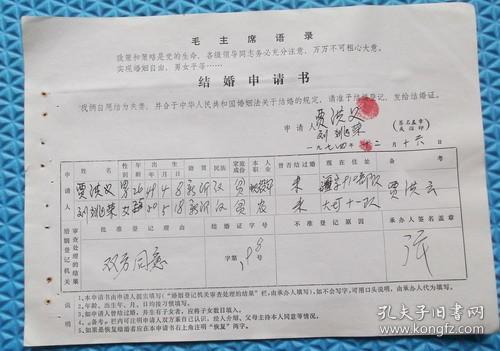 毛主席语录
政策和策略是党的生命,各级领导同志务必充分注意,万万不可粗心大意。
实现婚姻自由,男女平等……
结婚申请书
我俩自愿结为夫妻,并合于中华人民共和国婚姻法关于结婚的规定,请准予结婚登记,发给结婚证。
申请人 贾洪文 (签名盖章或指印)
刘 荣
一九七四年 二月十六日
申请人 姓名 性别 年龄 出生 年 月 日 籍贯 民族 家庭成份 本人职业 曾否结过婚 现在住址 备考
贾洪文 男 26 49 4 8 新沂 汉 贫 未 部队 贾洪云
刘 荣 女 50 5 18 新沂 汉 贫 农 未 大 十一队
婚姻登记机关审查处理的结果 批准登记理由 结婚证字号 不准登记原因 承办人签名盖章
双方同意 字第 98 号
说明
1.本申请书由申请人据实填写(“婚姻登记机关审查处理的结果”栏,由承办人填写),如不会写字,可用口头说明,由承办人代为填写。
2.年龄、出生年、月、日均按习惯填写。
3.申请人曾结过婚,并生有子女者,应将子女数目填入。
4.“备考”栏内可注明申请人双方系自己认识,经人介绍、父母主持本人同意等情况。
5.如果是恢复结婚者应在本申请书右上角注明“恢复”两字。
孔夫子旧书网
www.kongfz.com